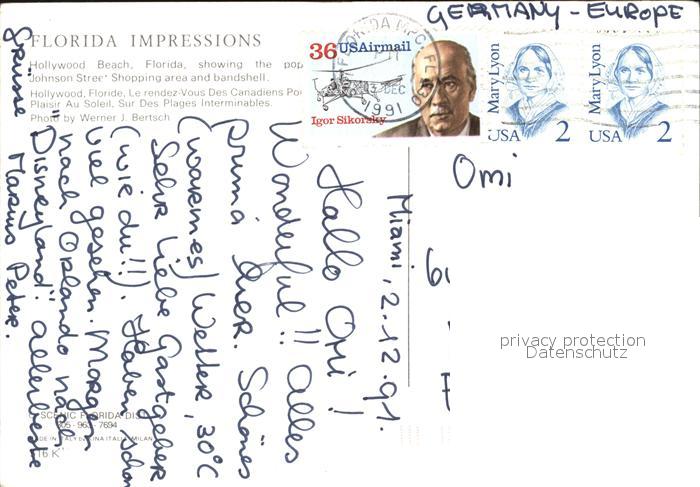 GERMANY - EUROPE
FLORIDA IMPRESSIONS
Hollywood Beach, Florida, showing the pop
Johnson Street Shopping area and bandshell.
Hollywood, Floride, Le rendez-Vous Des Canadiens Po
Plaisir Au Soleil, Sur Des Plages Interminables.
Photo by Werner J. Bertsch
36 USAirmail
Igor Sikorsky
FLORIDA MPC FL
DEC
1991
Mary Lyon
USA 2
Mary Lyon
USA 2
Omi
Miami, 2.12.91.
Hallo Omi!
Wonderful!! Alles
prima hier. Schönes
(warmes) Wetter, 30°C
Sehr liebe Gastgeber
(wie du!!). Haben schon
viel gesehen. Morgen
nach Orlando nach
"Disneyland". Allerbeste
Grüsse Marius Peter.
SCENIC FLORIDA DIS
305 - 963 - 7694
MADE IN ITALY MILAN
privacy protection
Datenschutz